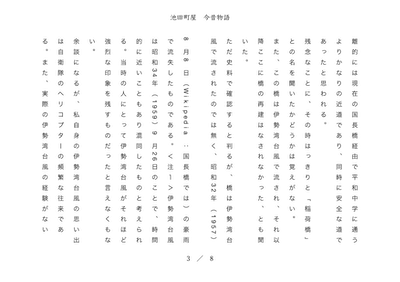 池田町屋　今昔物語
離的には現在の国長橋経由で平和中学に通う
よりかなりの近道であり、同時に安全な道で
あったと思われる。
残念なことに、その時はっきりと「稲荷橋」
との名を聞いたかどうかは覚えがない。
また、この橋は伊勢湾台風で流され、それ以
降ここに橋の再建はなされなかった、とも聞
ただ史料で確認すると判るが、橋は伊勢湾台
風で流されたのでは無く、昭和３２年（１９５７）
８月８日（Ｗｉｋｉｐｅｄｉａ：国長橋では）の豪雨
で流失したものである。＜注１＞伊勢湾台風
は昭和３４年（１９５９）９月２６日のことで、時間
的に近いこともあり混同したものと考えられ
る。当時の人にとって伊勢湾台風がそれほど
強烈な印象を残すものだったと言えなくもな
い。
余談になるが、私自身の伊勢湾台風の思い出
は自衛隊のヘリコプターの頻繁な往来であ
る。また、実際の伊勢湾台風の経験がない
3 ／ 8